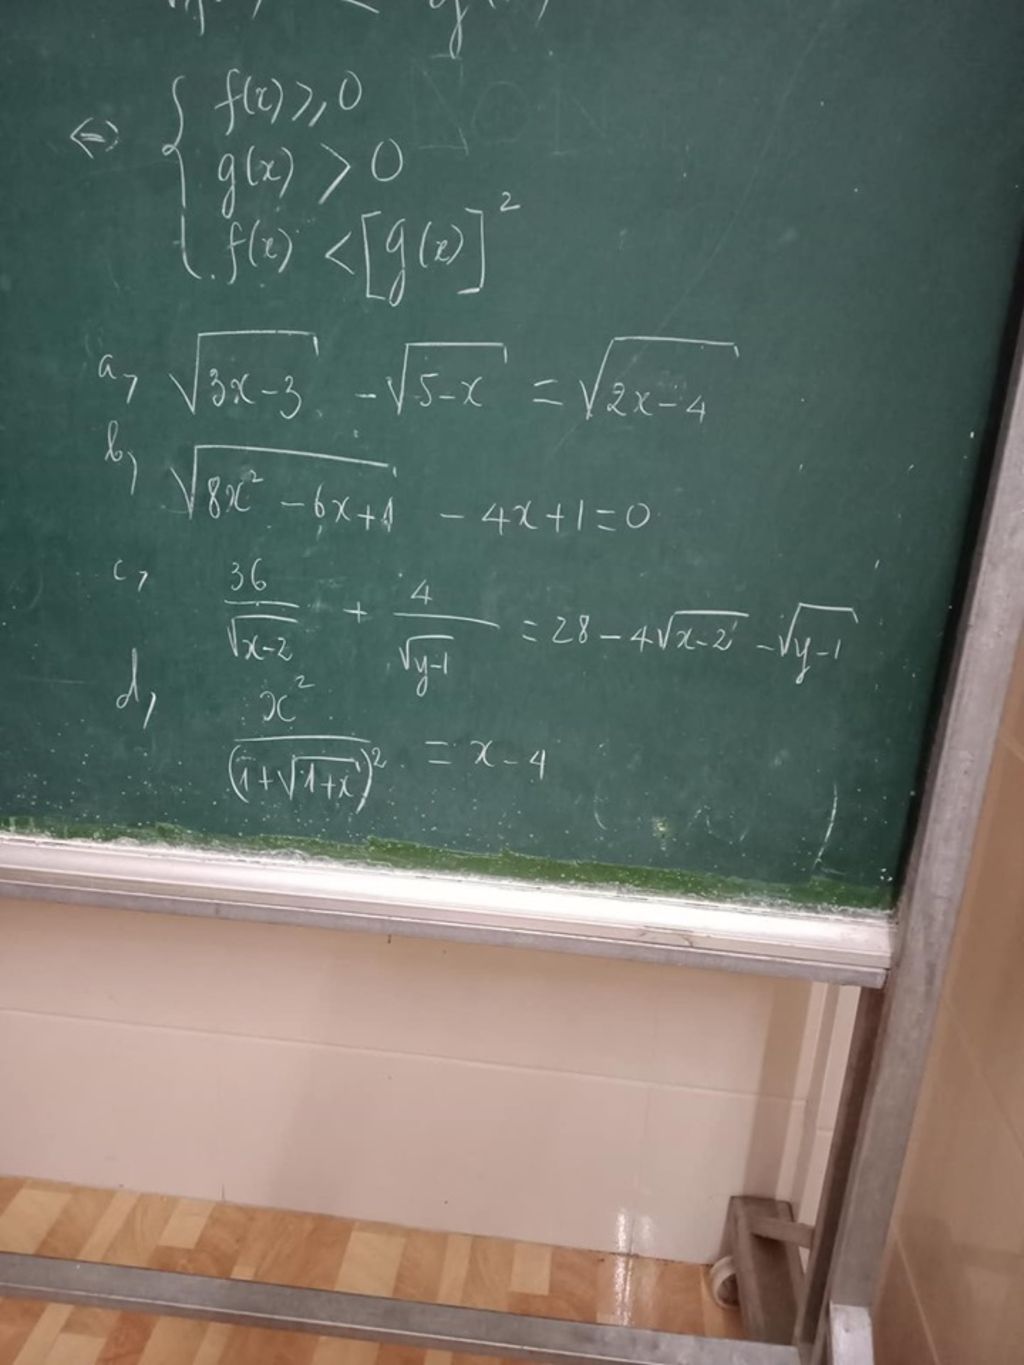 ⇔ { f(x) ⩾ 0
g(x) > 0
f(x) < [g(x)]²
a, √(3x-3) - √(5-x) = √(2x-4)
b, √(8x² - 6x+1) - 4x+1=0
c, 36/√(x-2) + 4/√(y-1) = 28 - 4√(x-2) - √(y-1)
d, x²/(1+√(1+x))² = x-4